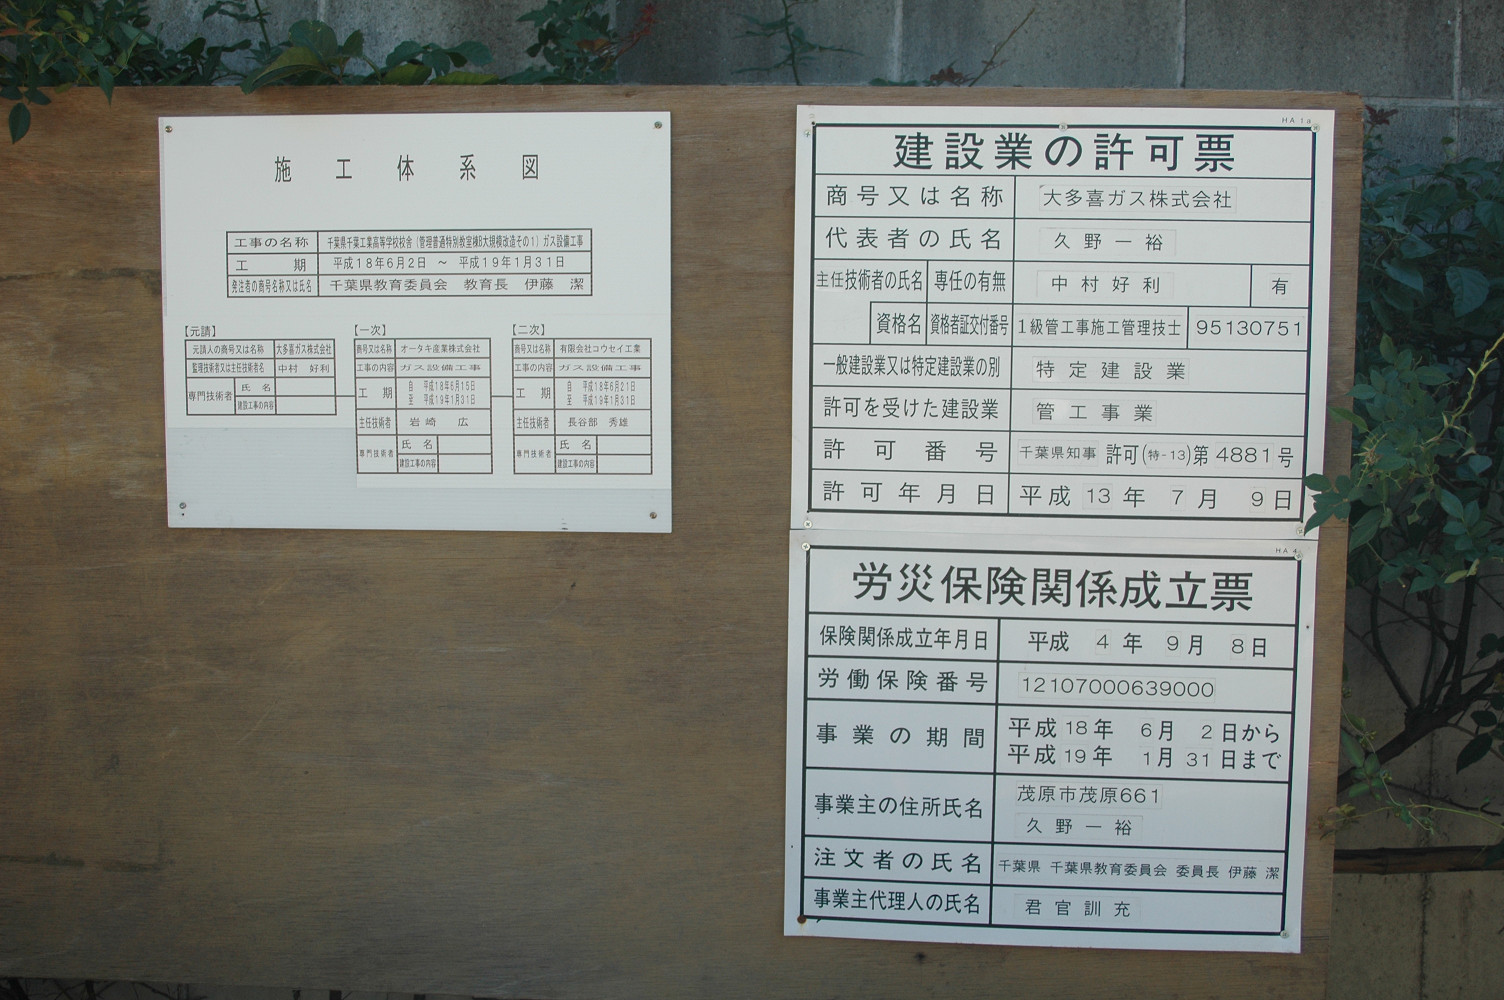 施工体系図
工事の名称 千葉県千葉工業高等学校校舎(管理普通特別教室棟B大規模改造その1)ガス設備工事
工期 平成18年6月2日 ~ 平成19年1月31日
発注者の商号名称又は氏名 千葉県教育委員会 教育長 伊藤 潔
【元請】
元請人の商号又は名称 大多喜ガス株式会社
監理技術者又は主任技術者名 中村 好利
専門技術者 氏名
建設工事の内容
【一次】
商号又は名称 オータキ産業株式会社
工事の内容 ガス設備工事
工期 自 平成18年6月15日
至 平成19年1月31日
主任技術者 岩崎 広
専門技術者 氏名
建設工事の内容
【二次】
商号又は名称 有限会社コウセイ工業
工事の内容 ガス設備工事
工期 自 平成18年6月21日
至 平成19年1月31日
主任技術者 長谷部 秀雄
専門技術者 氏名
建設工事の内容
HA 1a
建設業の許可票
商号又は名称 大多喜ガス株式会社
代表者の氏名 久野一裕
主任技術者の氏名 専任の有無 中村好利 有
資格名 資格者証交付番号 1級管工事施工管理技士 95130751
一般建設業又は特定建設業の別 特定建設業
許可を受けた建設業 管工事業
許可番号 千葉県知事 許可(特-13)第4881号
許可年月日 平成13年7月9日
HA 4
労災保険関係成立票
保険関係成立年月日 平成 4年 9月 8日
労働保険番号 12107000639000
事業の期間 平成18年 6月 2日から
平成19年 1月31日まで
事業主の住所氏名 茂原市茂原661
久野一裕
注文者の氏名 千葉県 千葉県教育委員会 委員長 伊藤 潔
事業主代理人の氏名 君官訓充